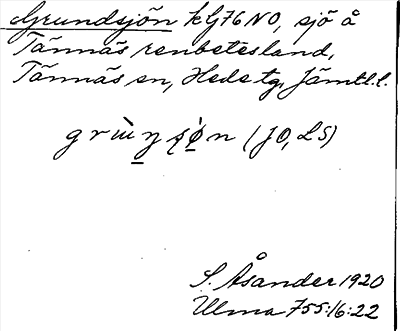 Grundsjön kG76NO, sjö å
Tännäs renbetesland,
Tännäs sn, Hede tg, Jämtl.l.
(JO, LS)
S. Åsander 1920
Ulma 755:16:22